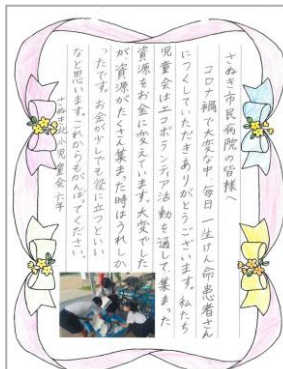 さぬき市民病院の皆様へ
コロナ禍で大変な中、毎日一生けん命患者さん
につくしていただきありがとうございます。私たち
児童会はエコボランティア活動を通して、集まった
資源をお金に変えています。大変でした
が、資源がたくさん集まった時はうれしか
ったです。お金が少しでも役に立つといい
なと思います。これからもがんばってください。
さぬき北小児童会六年